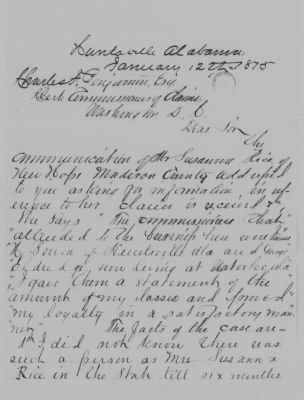 Huntsville Alabama
January 12th 1875
Charles F. Benjamin Esq
Clerk Commissioners of Claims
Washington D. C.
Dear Sir
The
communication of Mrs Susanna Rice of
New Hope Madison County addressed
to you asking for information in ref
erence to her claim is received
She says "The commissioners that"
"attended to the business here were
of Huntsville Ala and
now living at
"I gave them a statement of the
amount of my losses and proved"
"my loyalty in a satisfactory man
ner" The facts of the case are-
1st I did not know there was
such a person as Mrs Susanna
Rice in the State till six months